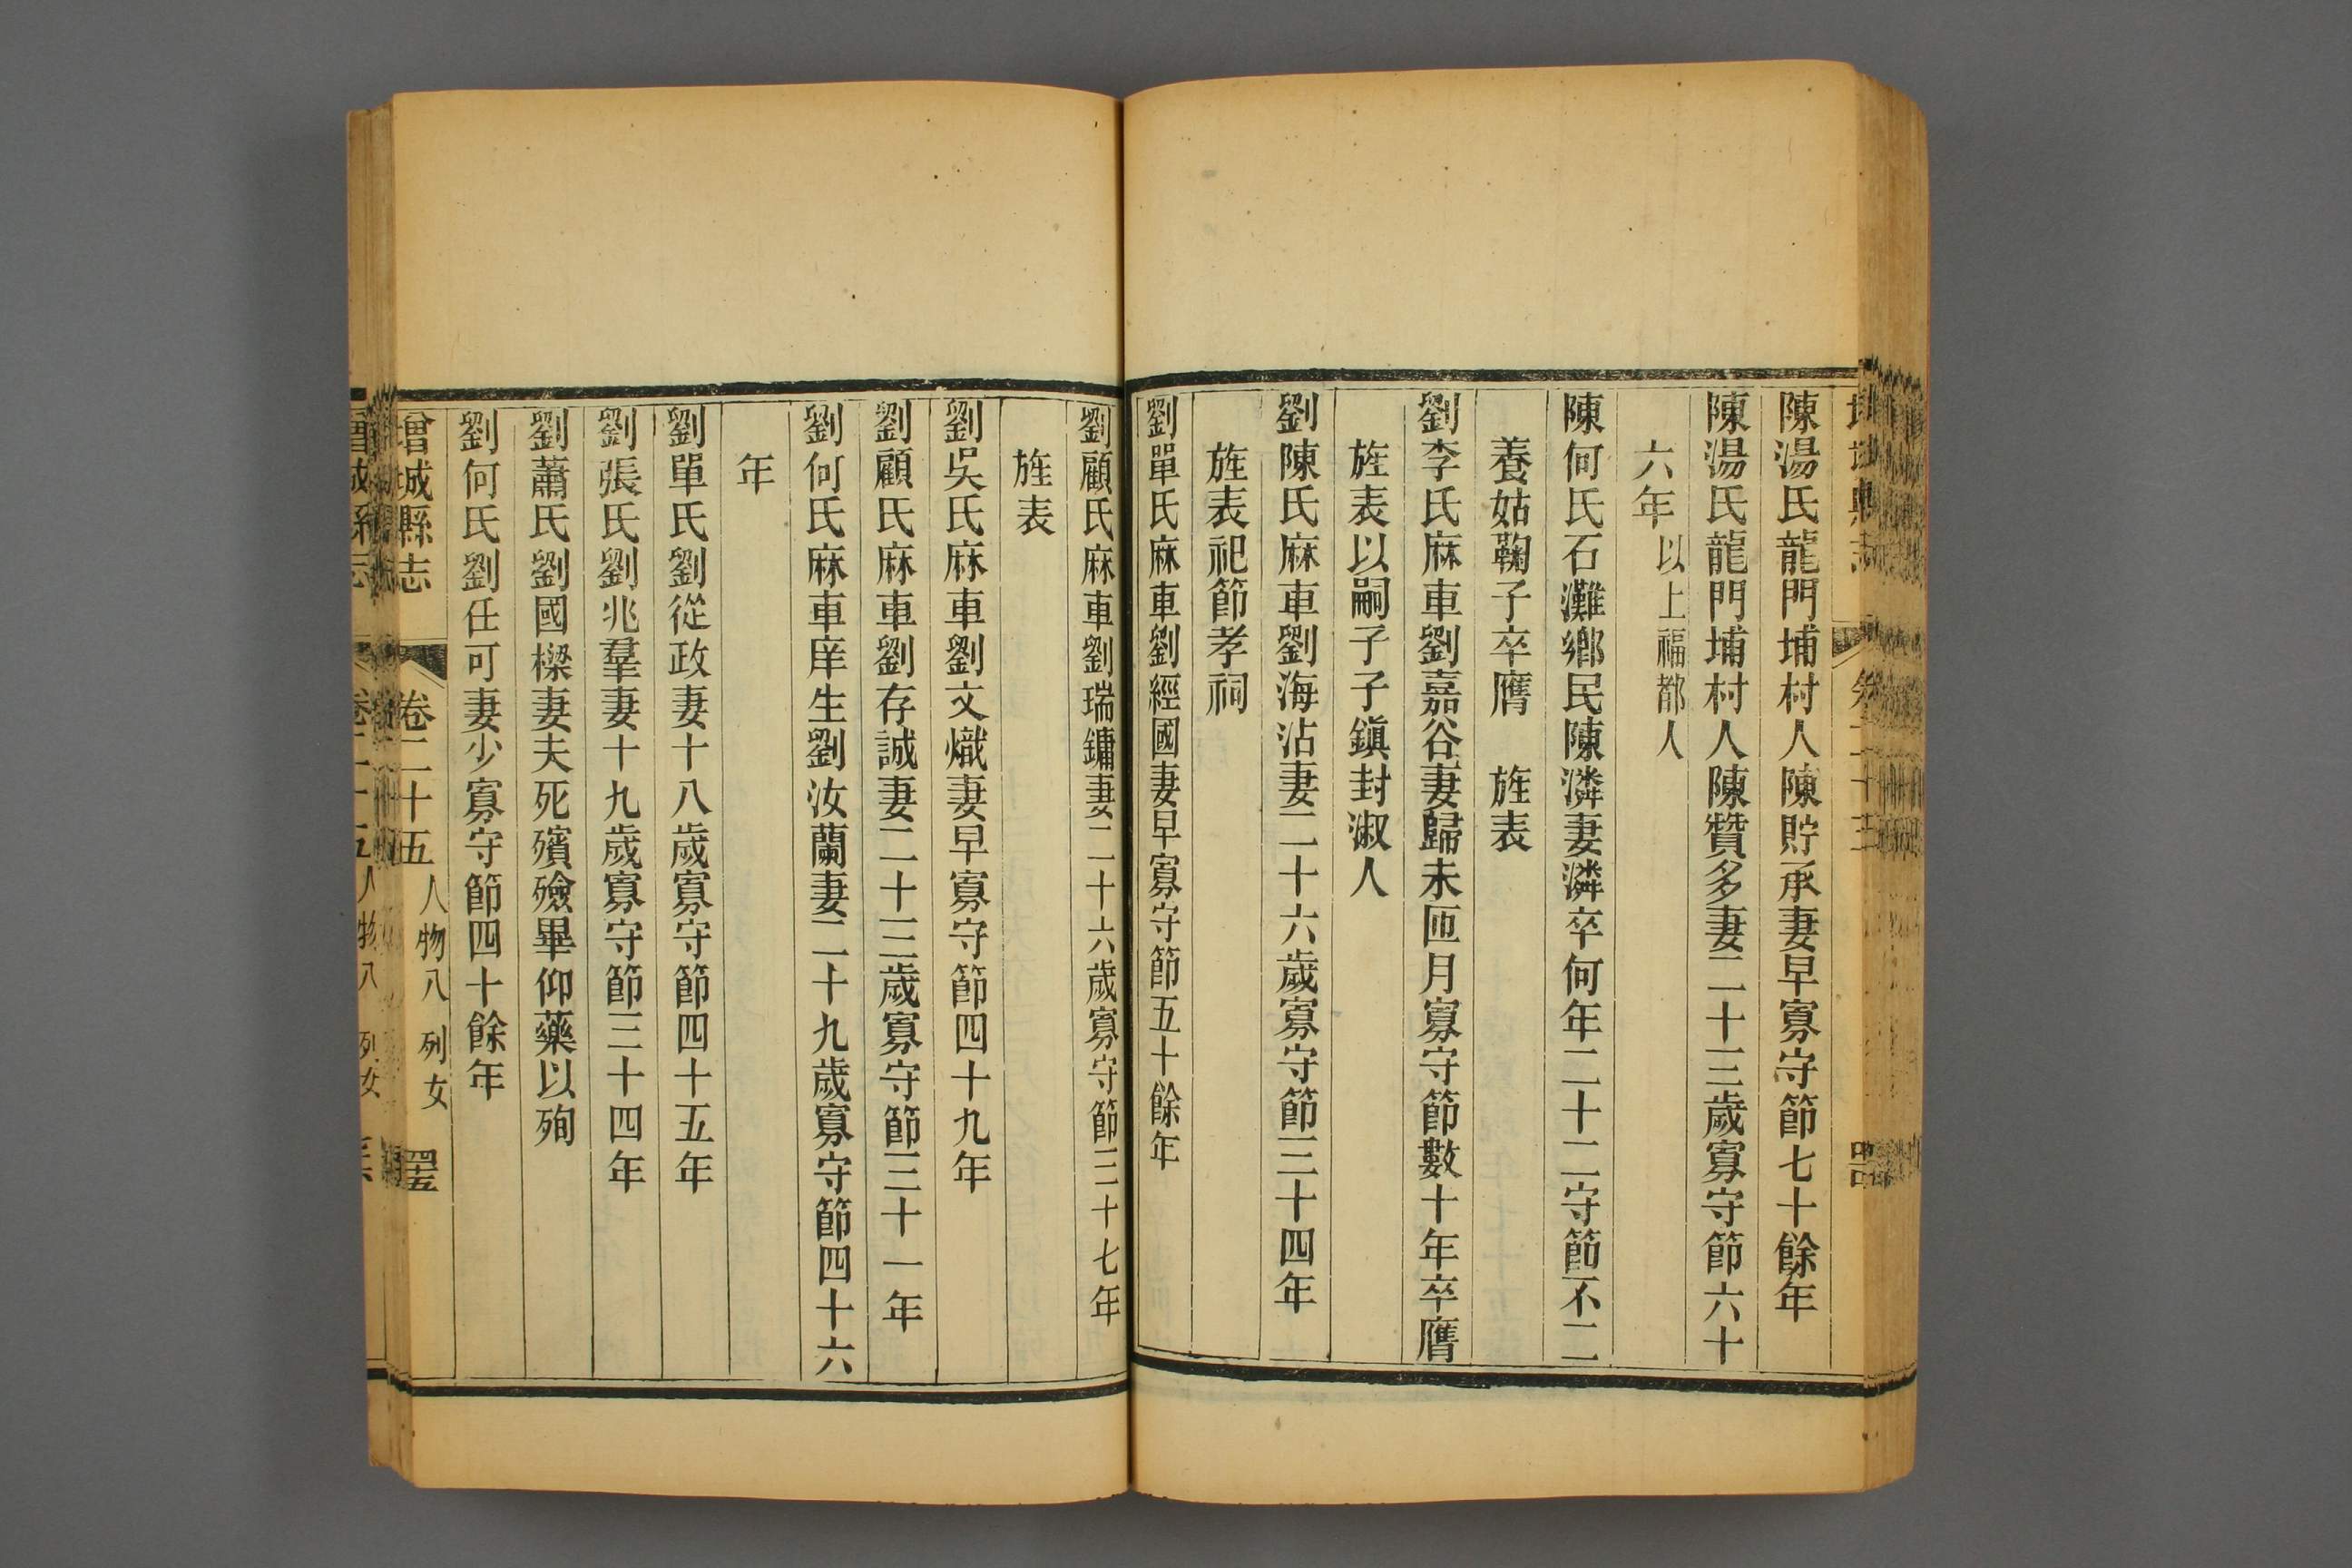 陳湯氏龍門埔村人陳貯承妻早寡守節七十餘年
陳湯氏龍門埔村人陳贊多妻二十三歲寡守節六十
六年以上福都人
陳何氏石灘鄉民陳潾妻潾卒何年二十二守節不二
養姑鞠子卒膺　旌表
劉李氏麻車劉嘉谷妻歸未匝月寡守節數十年卒膺
旌表以嗣子子鎮封淑人
劉陳氏麻車劉海沾妻二十六歲寡守節三十四年
旌表祀節孝祠
劉單氏麻車劉經國妻早寡守節五十餘年
劉顧氏麻車劉瑞鏞妻二十六歲寡守節三十七年
旌表
劉吳氏麻車劉文熾妻早寡守節四十九年
劉顧氏麻車劉存誠妻二十三歲寡守節三十一年
劉何氏麻車庠生劉汝蘭妻二十九歲寡守節四十六
年
劉單氏劉從政妻十八歲寡守節四十五年
劉張氏劉兆羣妻十九歲寡守節三十四年
劉蕭氏劉國樑妻夫死殯殮畢仰藥以殉
劉何氏劉任可妻少寡守節四十餘年
增城縣志　卷二十五　人物八　列女　四五